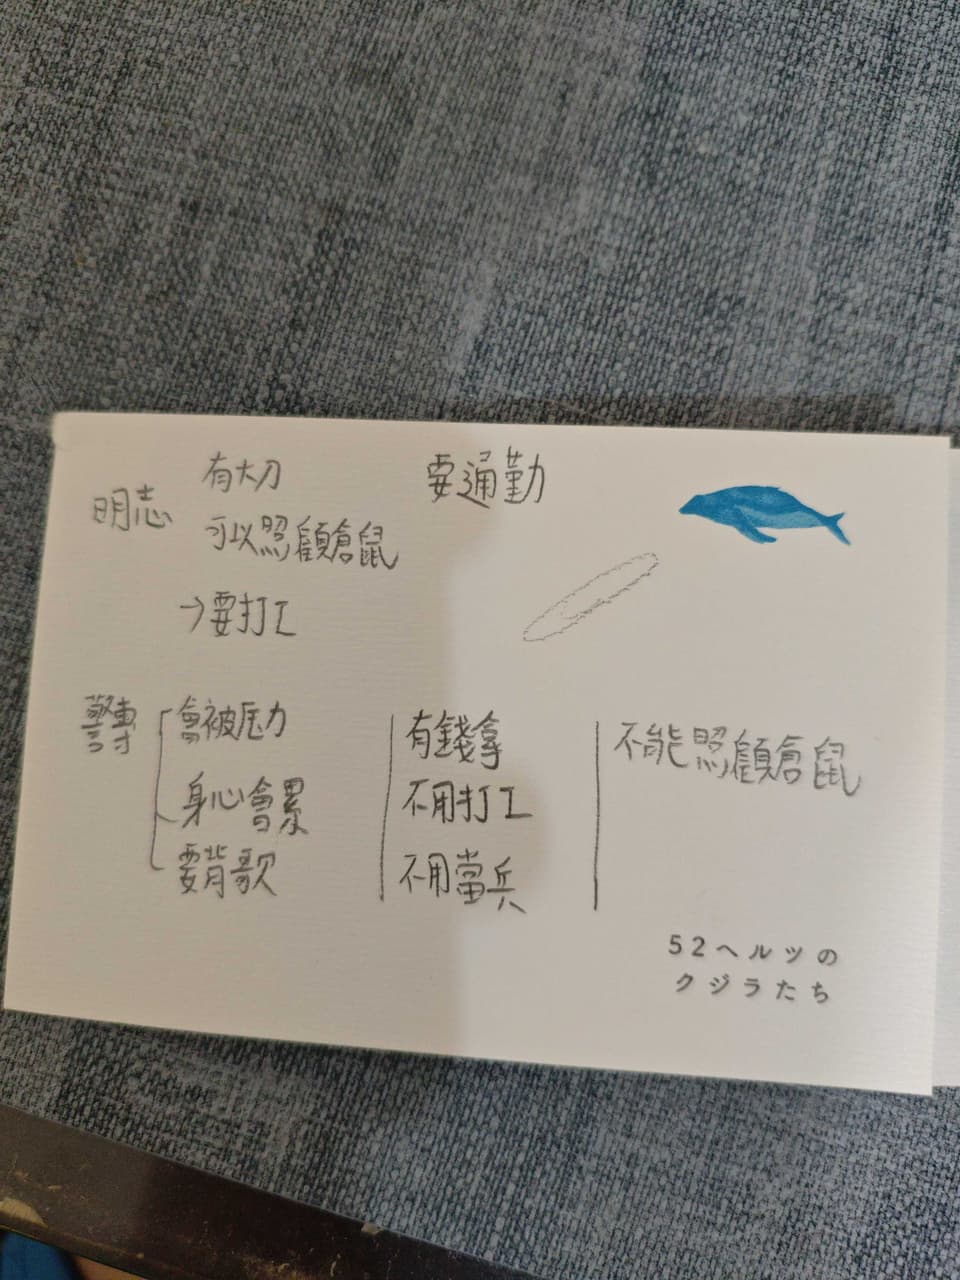 明志
有大刀
可以照顧倉鼠
→要打工
要通勤
警專
會被壓力
身心會累
要背歌
有錢拿
不用打工
不用當兵
不能照顧倉鼠
52ヘルツの
クジラたち